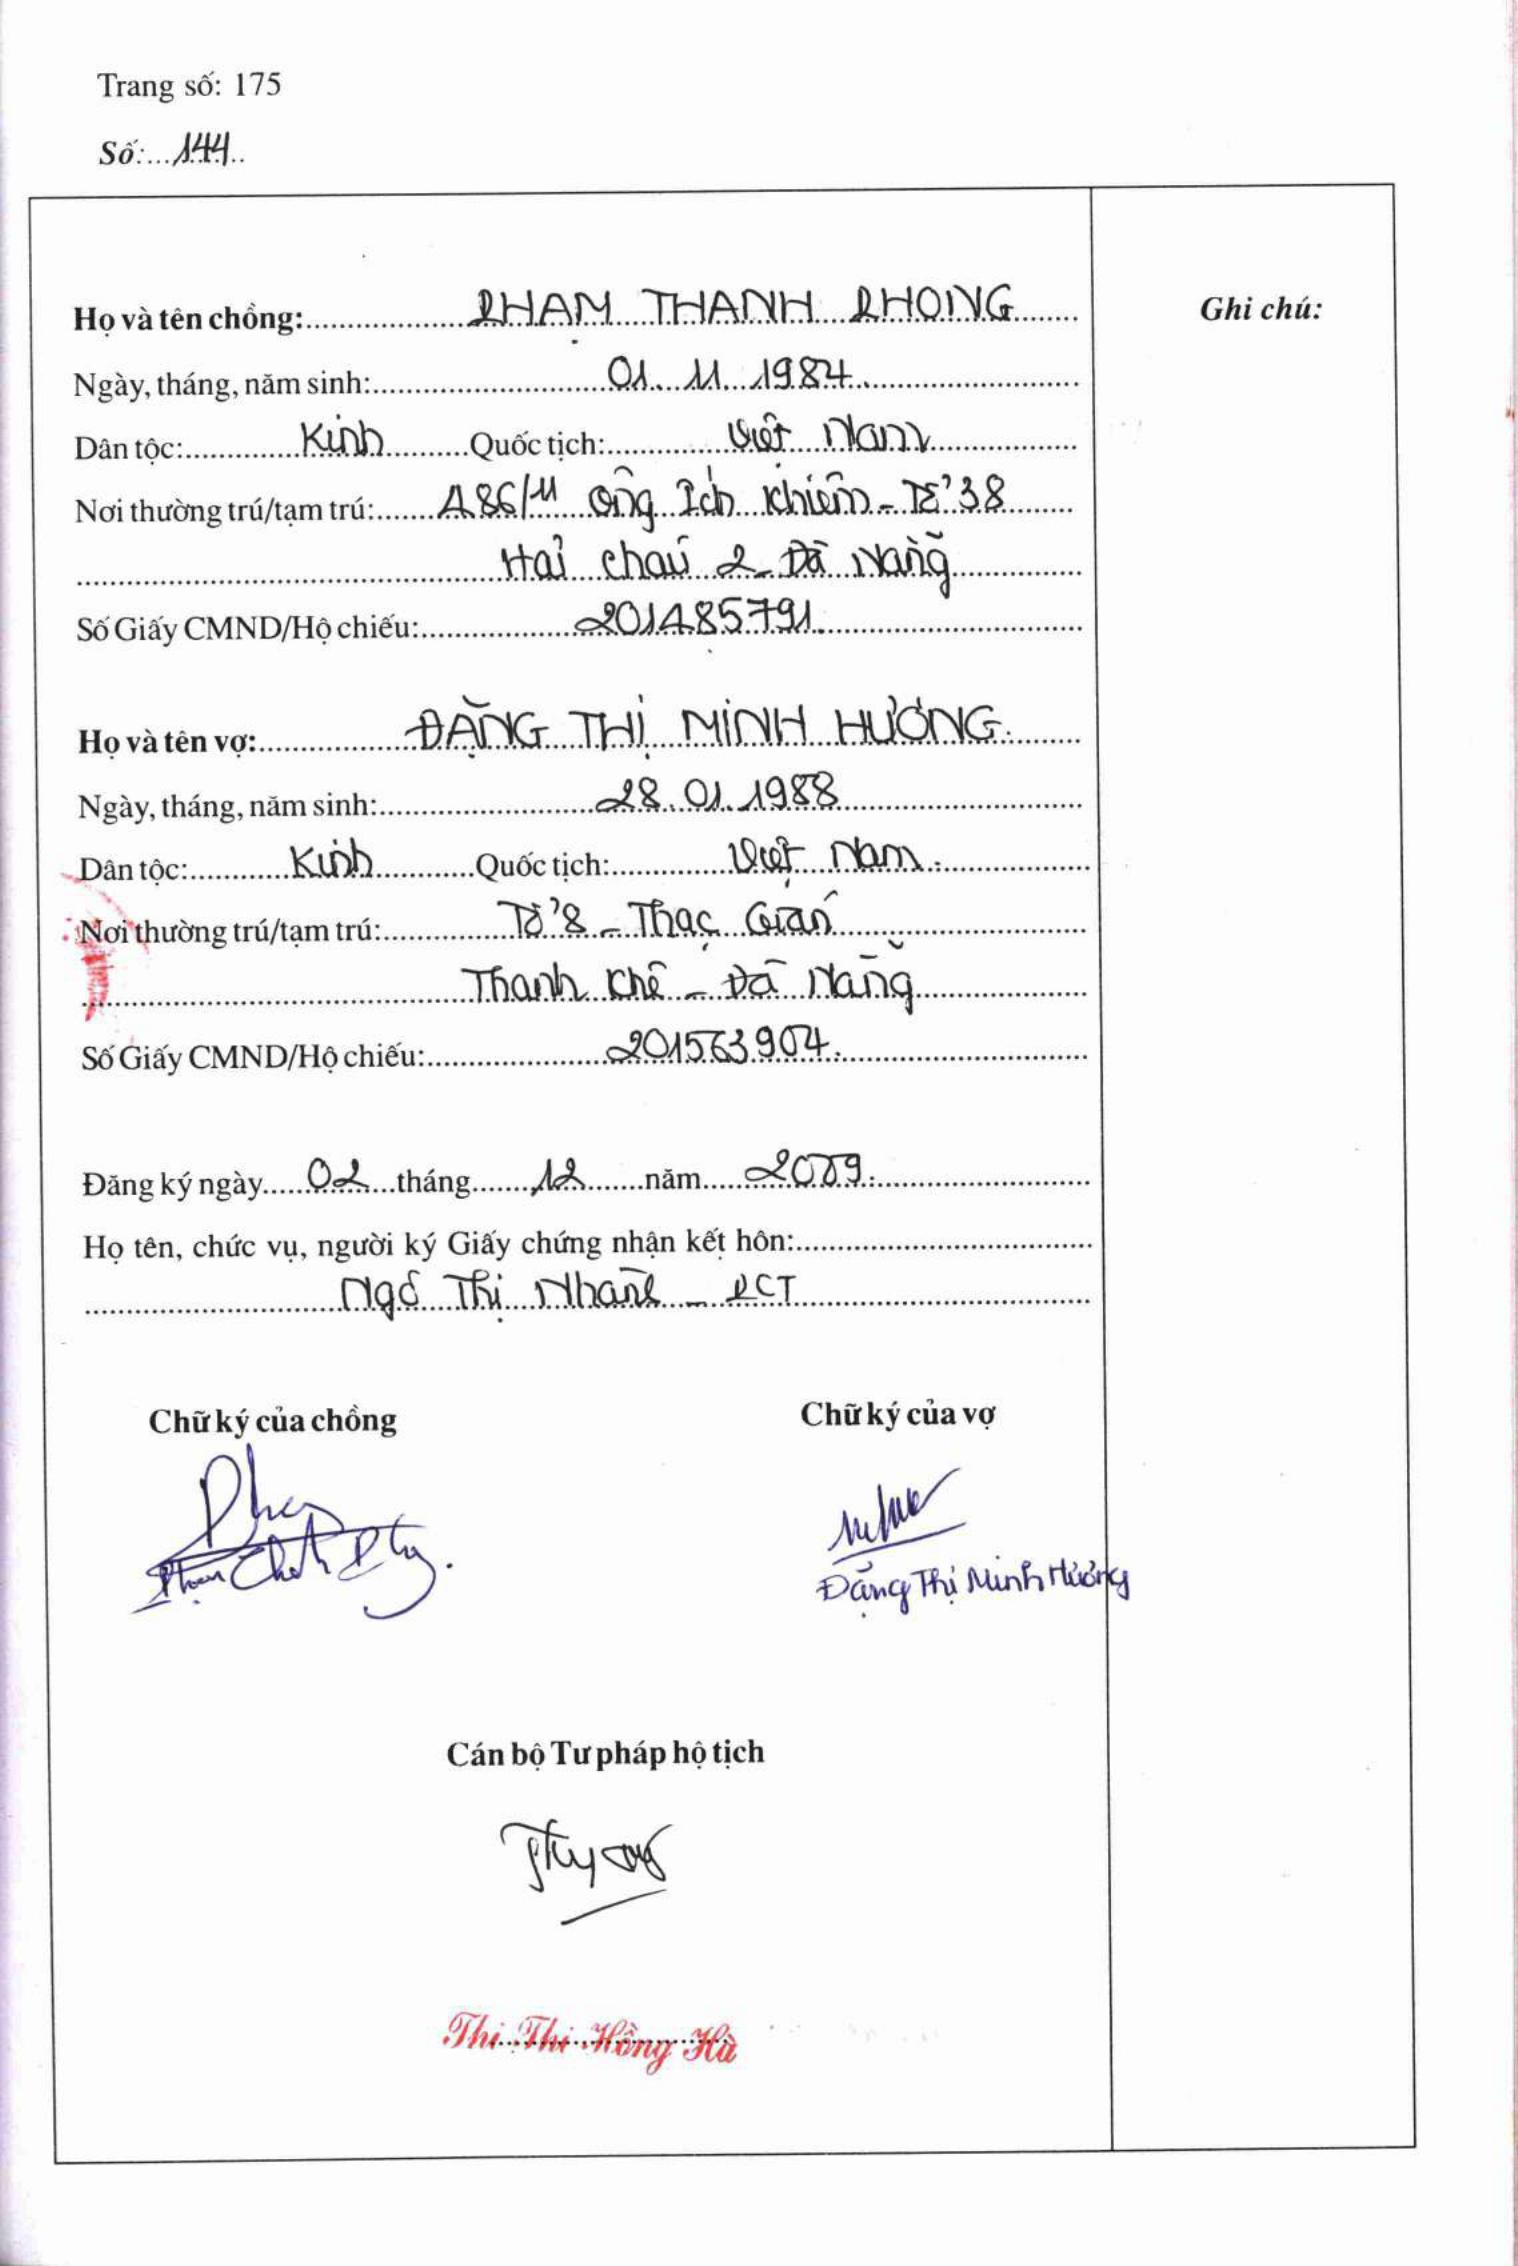 Trang số: 175
Số: 144
Họ và tên chồng: PHẠM THANH PHONG
Ghi chú:
Ngày, tháng, năm sinh: 01.11.1984
Dân tộc: Kinh Quốc tịch: Việt Nam
Nơi thường trú/tạm trú: A86/11 Ông Ích Khiêm - Tổ 38
Hải Châu 2 - Đà Nẵng
Số Giấy CMND/Hộ chiếu: 201485791
Họ và tên vợ: ĐẶNG THỊ MINH HƯƠNG
Ngày, tháng, năm sinh: 28.01.1988
Dân tộc: Kinh Quốc tịch: Việt Nam
Nơi thường trú/tạm trú: Tổ 8 - Thạc Gián
Thanh Khê - Đà Nẵng
Số Giấy CMND/Hộ chiếu: 201563904
Đăng ký ngày 02 tháng 12 năm 2009
Họ tên, chức vụ, người ký Giấy chứng nhận kết hôn:
Ngô Thị Nhành - PCT
Chữ ký của chồng Chữ ký của vợ
Đặng Thị Minh Hương
Cán bộ Tư pháp hộ tịch
Thi Thị Hồng Hà